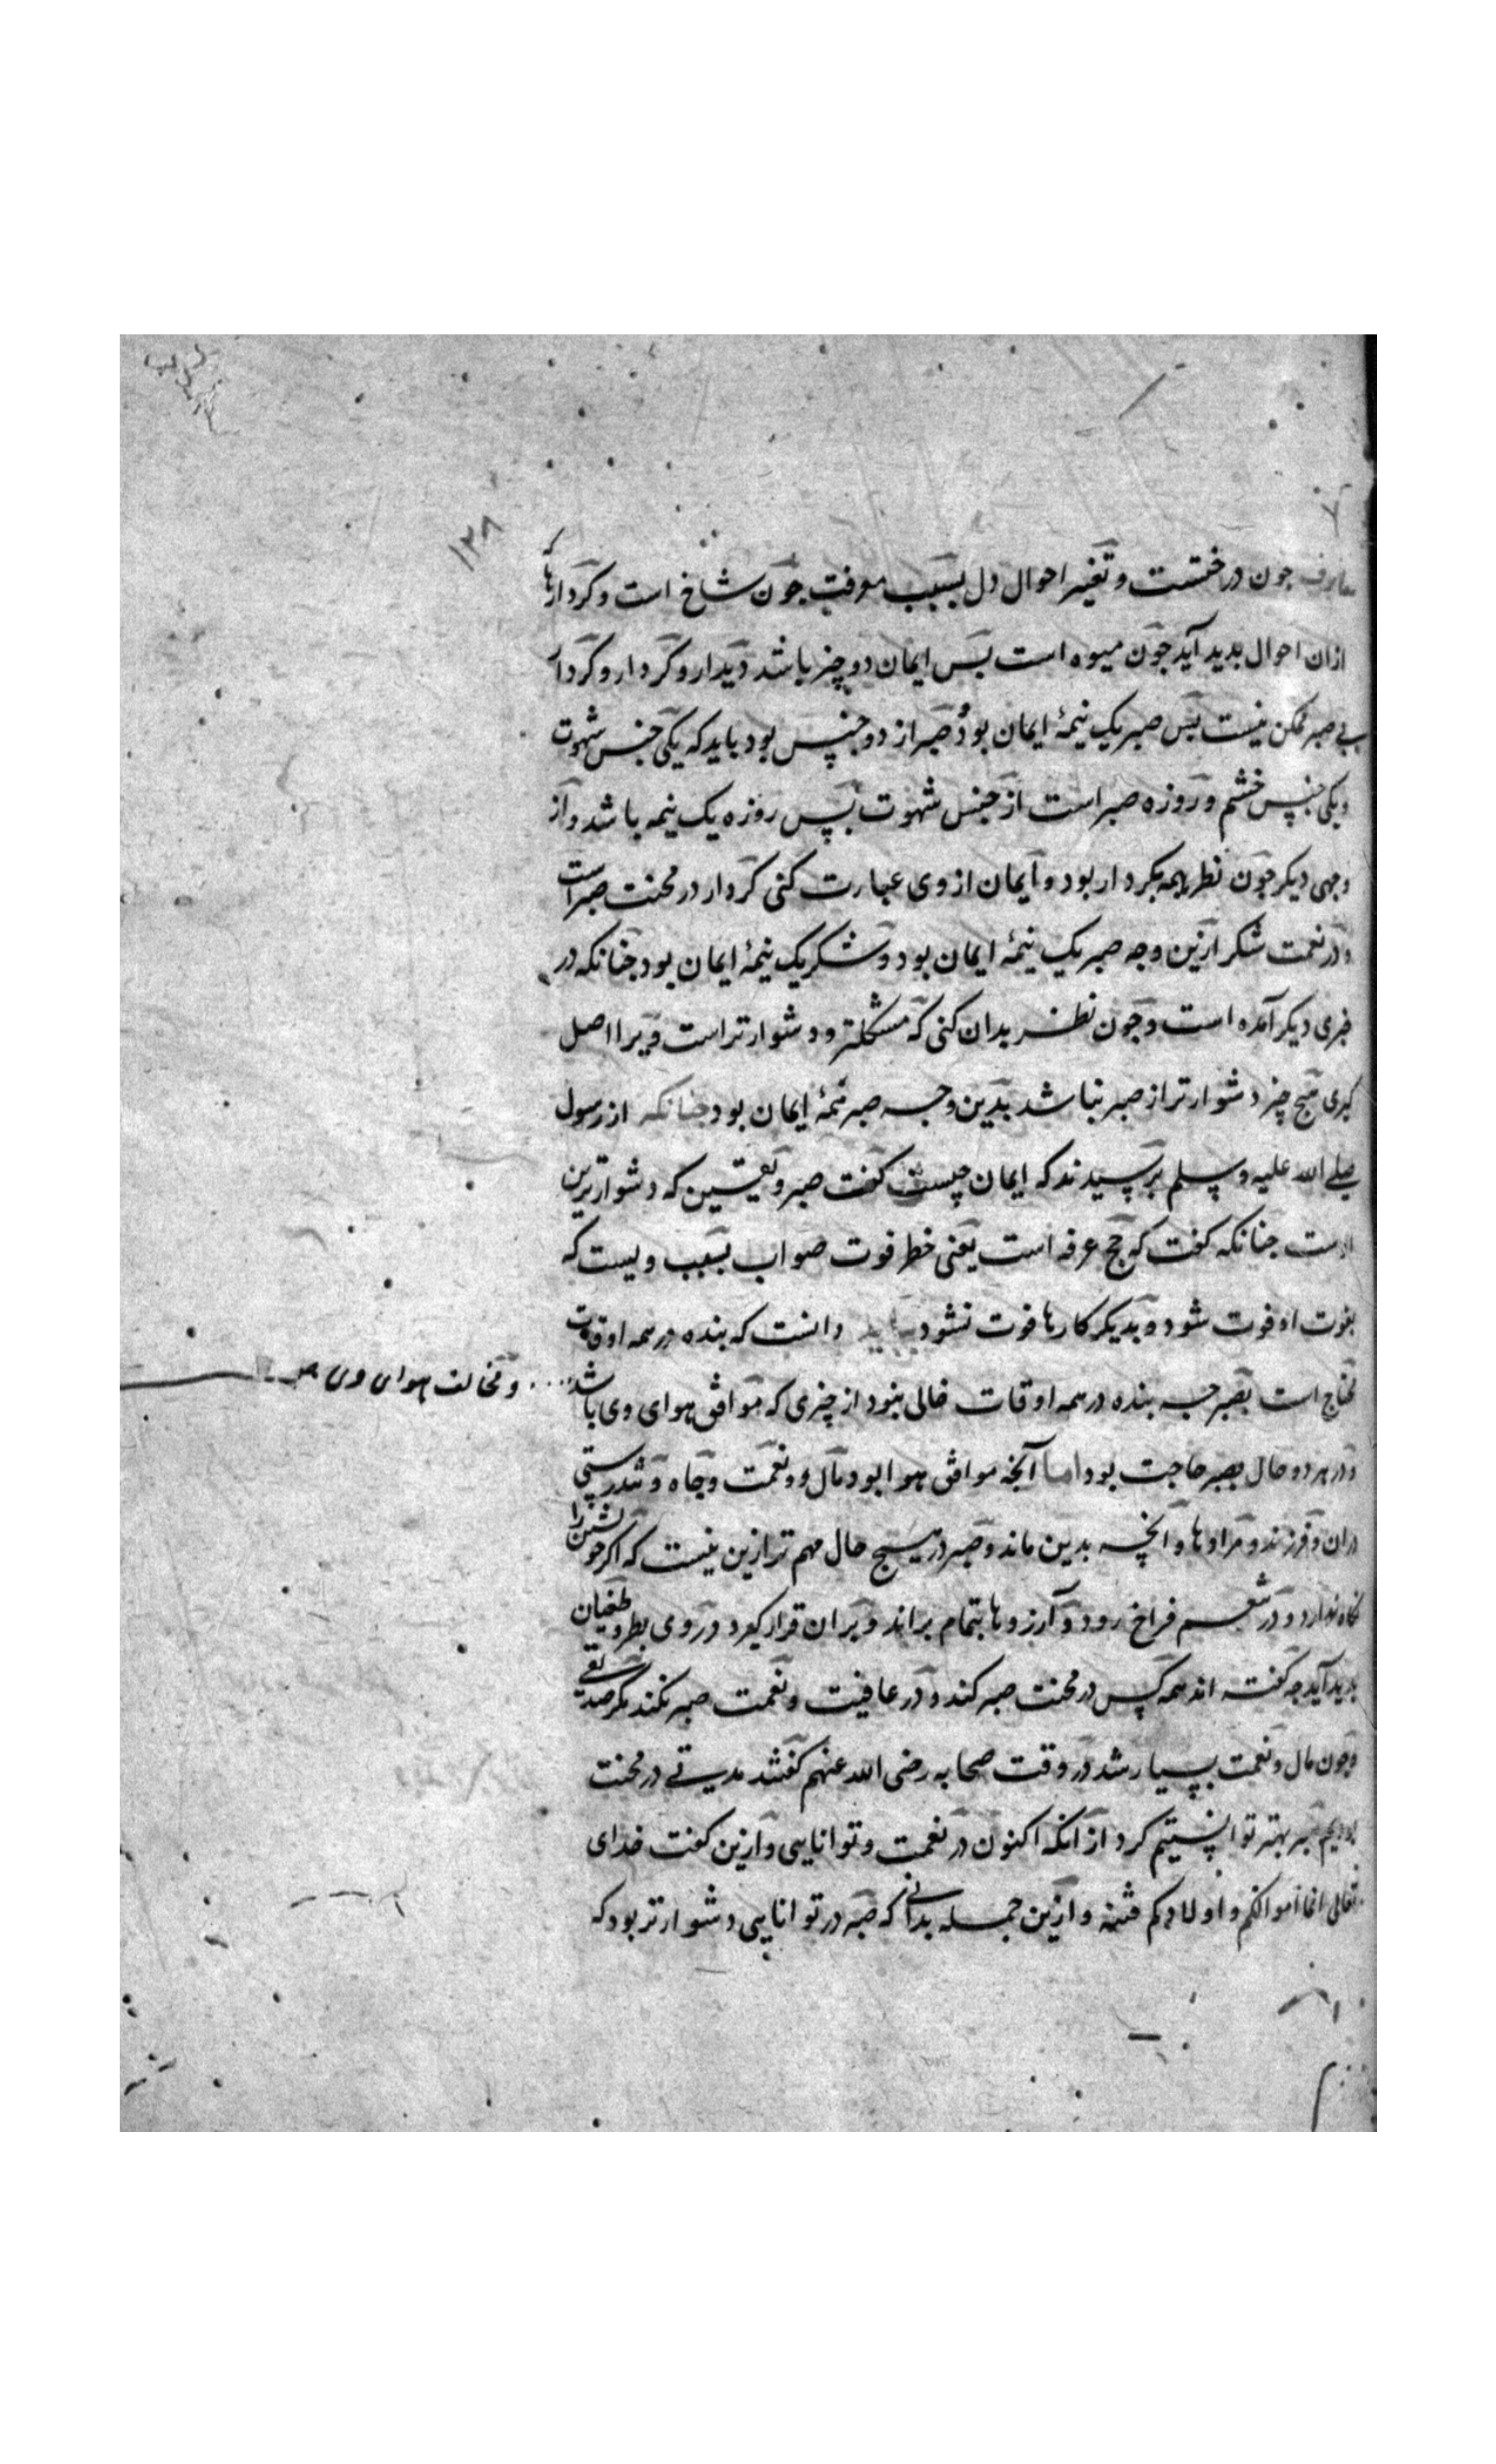 ۱۳۸
معارف چون درختست و تغییر احوال دل بسبب معرفت چون شاخ است و کردارها که
ازان احوال بدید آید چون میوه است پس ایمان دو چیز باشد دیدار و کردار و کردار
بی صبر ممکن نیست پس صبر یک نیمهٔ ایمان بود و صبر از دو جنس بود باید که یکی جنس شهوت
و یکی جنس خشم و روزه صبر است از جنس شهوت پس روزه یک نیمه باشد و از
وجهی دیکر چون نظر همه بکردار بود و ایمان از وی عبارت کنی کردار در محنت صبر است
و در نعمت شکر ازین وجه صبر یک نیمهٔ ایمان بود و شکر یک نیمهٔ ایمان بود چنانکه در
خبری دیکر آمده است و چون نظر بدان کنی که مشکلتر و دشوارتر است و یرا اصل
کیری هیچ چیز دشوارتر از صبر نباشد بدین وجه صبر نیمهٔ ایمان بود چنانکه از رسول
صلی الله علیه وسلم پرسیدند که ایمان چیست کفت صبر و یقین که دشوارترین
اوست چنانکه کفت که حج عرفه است یعنی خطر فوت صواب بسبب ویست که
بفوت او فوت شود و بدیکر کارها فوت نشود بباید دانست که بنده در همه اوقات
محتاج است بصبر چه بنده در همه اوقات خالی نبود از چیزی که موافق هوای وی باشد
و مخالف هوای وی
و در هر دو حال بصبر حاجت بود اما آنچه موافق هوا بود مال و نعمت و جاه و تندرستی
و زن و فرزند و مرادها و آنچه بدین ماند و صبر در هیچ حال مهم تر ازین نیست که اکر خویشتن را
نکاه ندارد و در تنعم فراخ رود و آرزوها بتمام براند و بران قرار کیرد در وی بطر و طغیان
بدید آید چه کفته اند همه کس در محنت صبر کند و در عافیت و نعمت صبر نکند مکر صدیقی
و چون مال و نعمت بسیار شد در وقت صحابه رضی الله عنهم کفتند مدتی در محنت
بودیم صبر بهتر توانستیم کرد از آنکه اکنون در نعمت و توانایی و ازین کفت خدای
تعالی انما اموالکم و اولادکم فتنه و ازین جمله بدانی که صبر در توانایی دشوارتر بود که